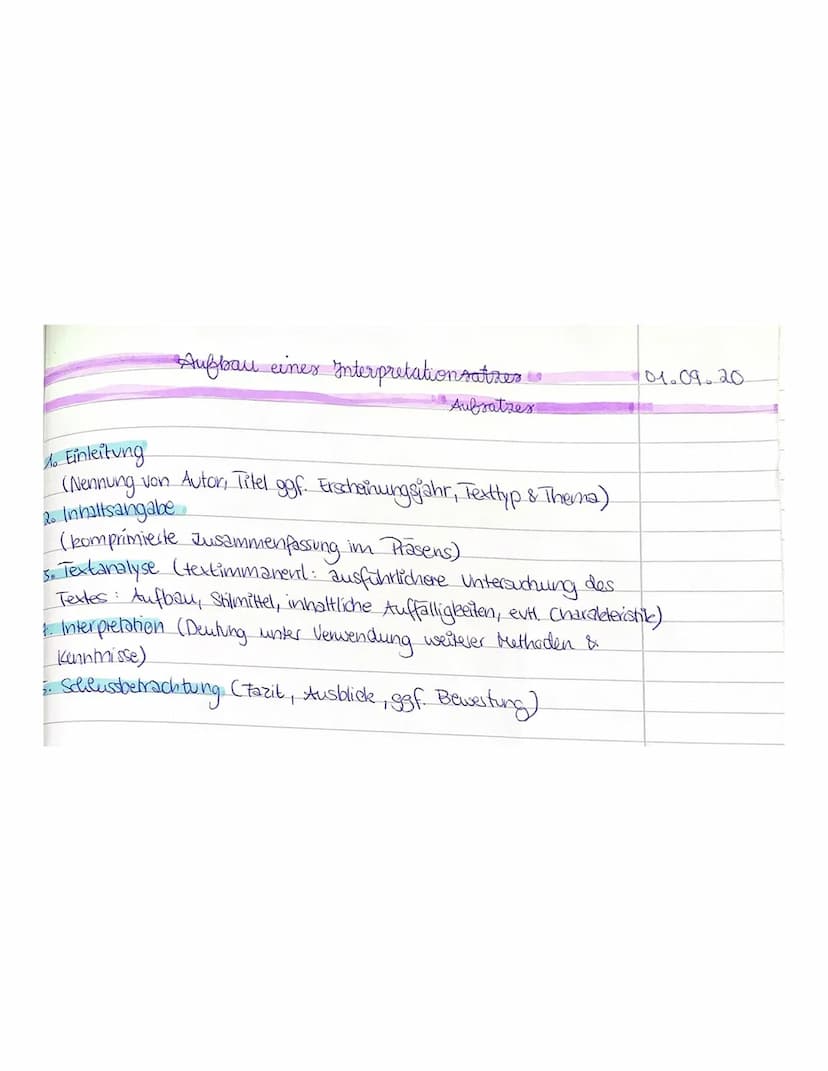 Aufbau eines Interpretationsatzes 01.09.20
Aufsatzes
1. Einleitung
(Nennung von Autor, Titel ggf. Erscheinungsjahr, Texttyp & Thema)
2. Inhaltsangabe
(komprimierte Zusammenfassung im Präsens)
3. Textanalyse (textimmanent: ausführlichere Untersuchung des
Textes: Aufbau, Stilmittel, inhaltliche Auffälligkeiten, evtl. Charakteristik)
4. Interpretation (Deutung unter Verwendung weiterer Methoden &
Kenntnisse)
5. Schlussbetrachtung (Fazit, Ausblick, ggf. Bewertung)